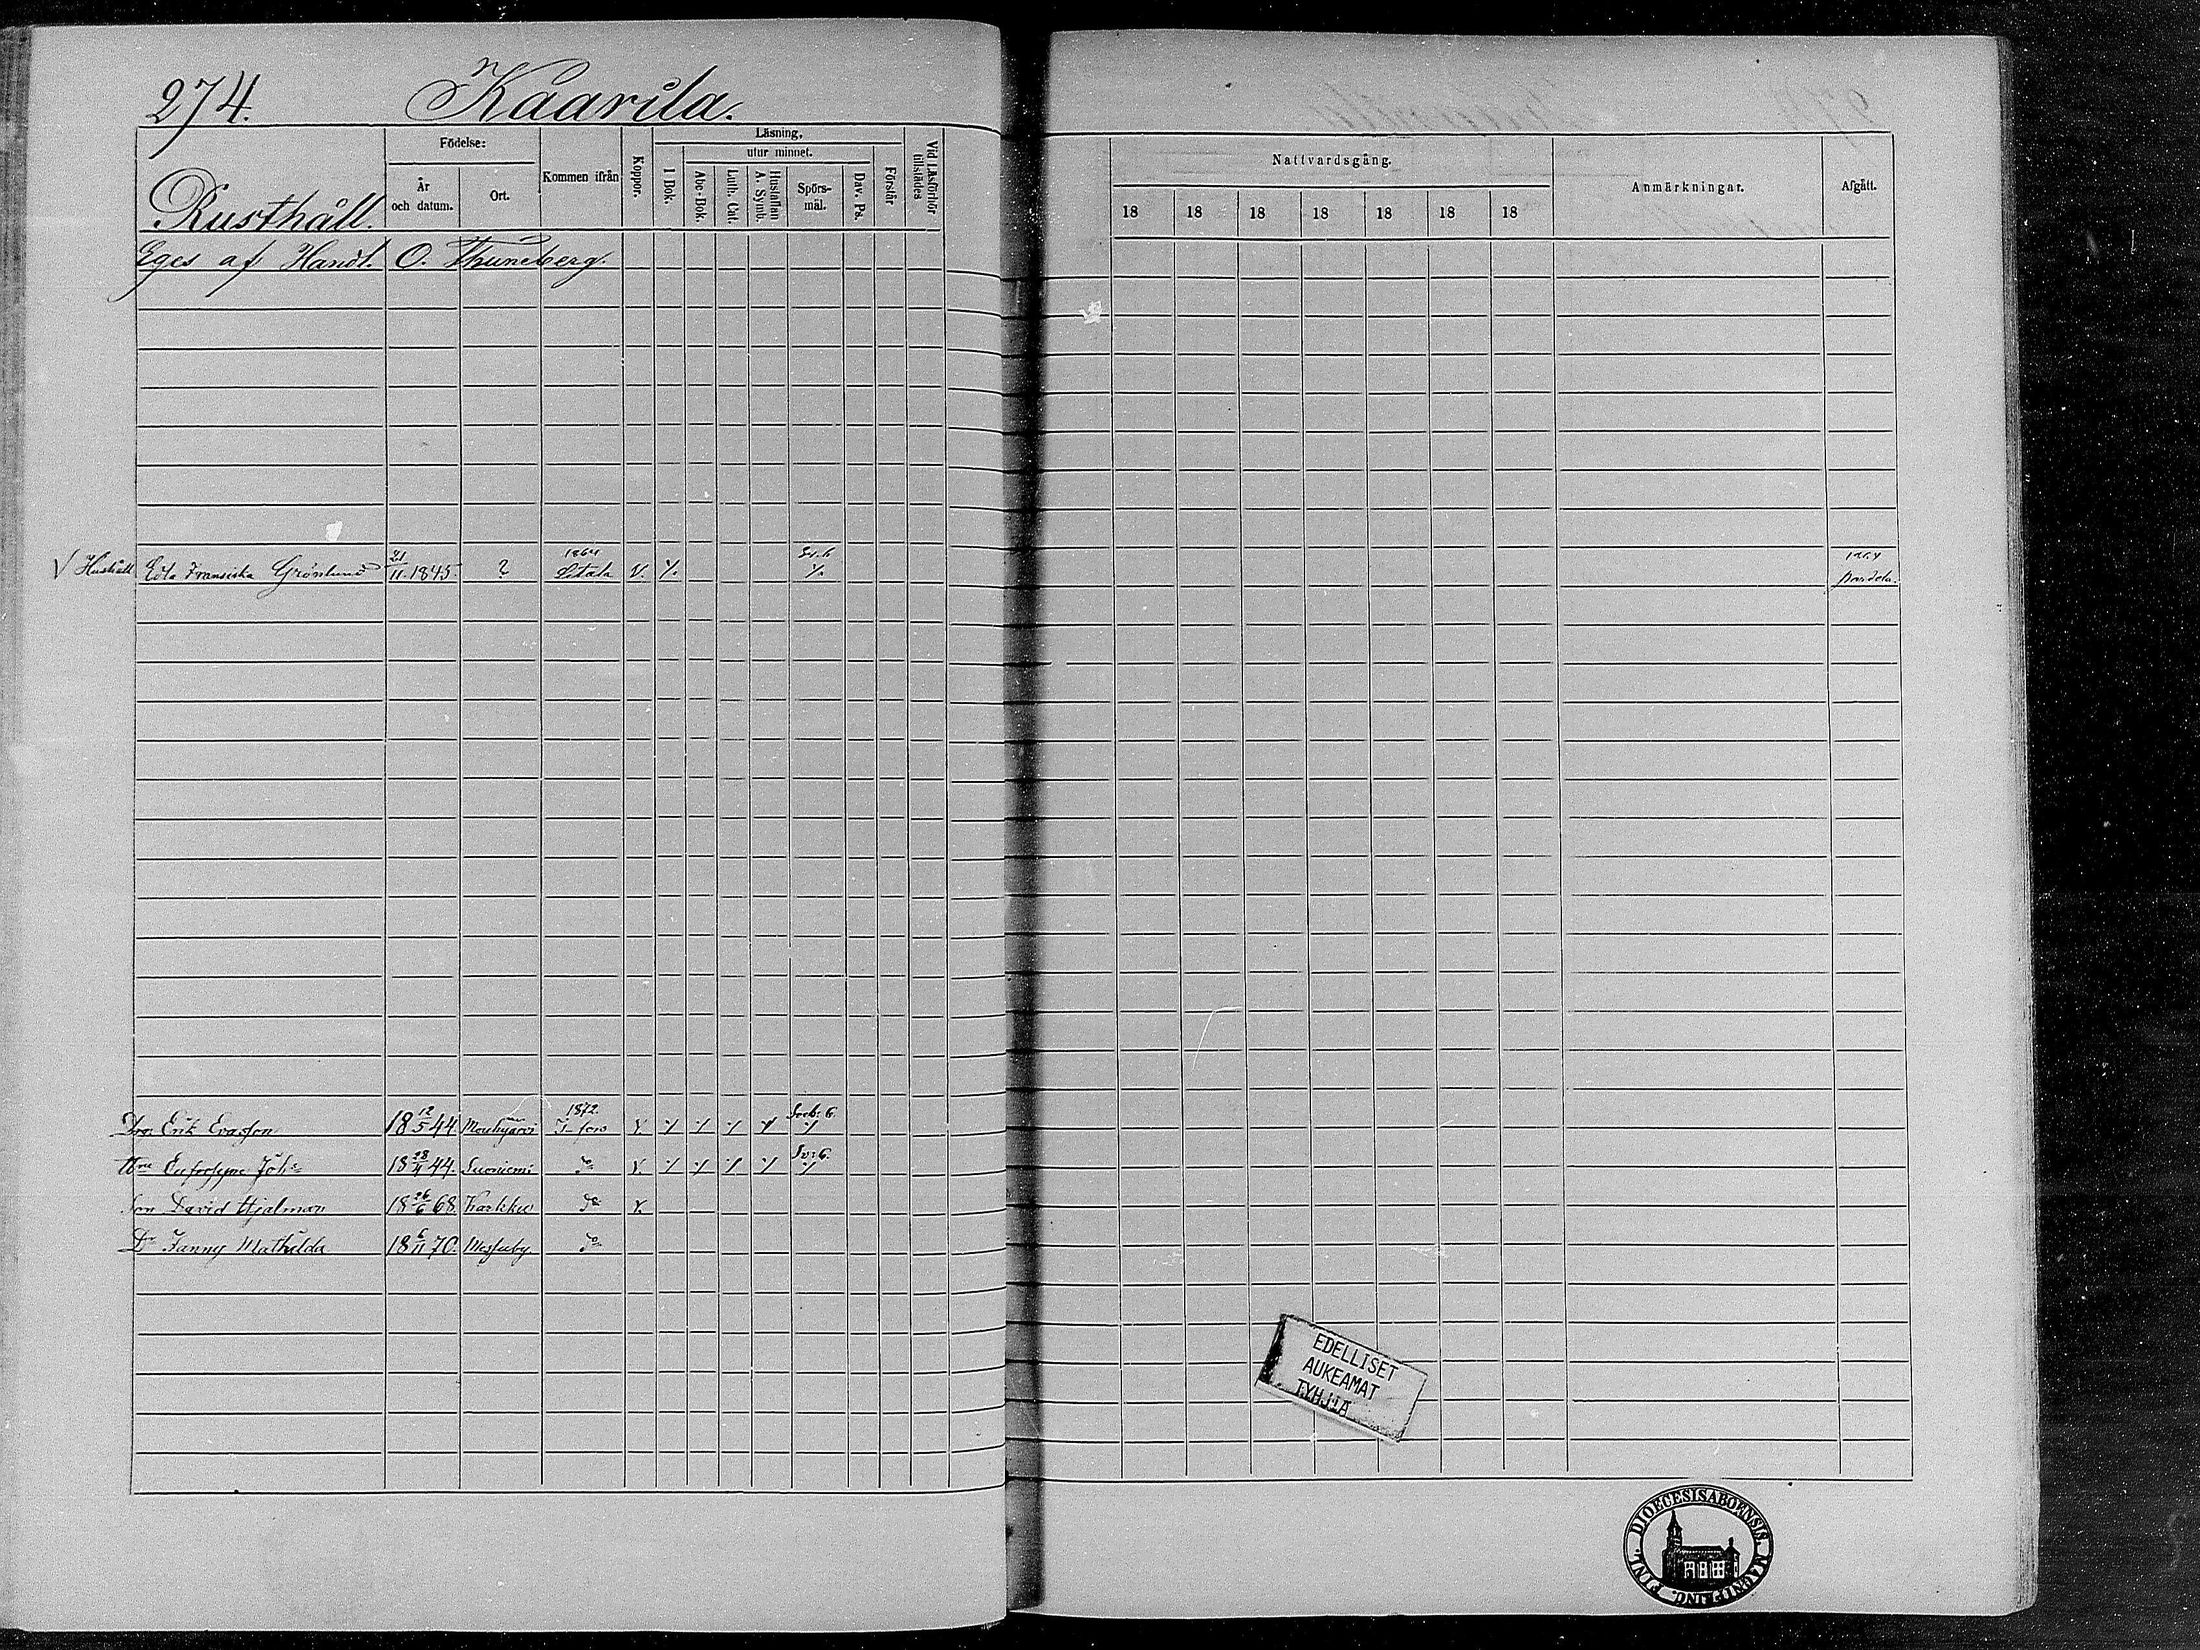 274. Kaarila.
Rusthåll.
Födelse:
År och datum.
Ort.
Kommen ifrån
Koppor.
Läsning,
utur minnet.
I Bok.
Abc-Bok.
Luth. Cat.
Hustaflan A. Symb.
Spörs-mål.
Dav. Ps.
Förstår
Vid Läsförhör tillstädes
Nattvardsgång.
18 18 18 18 18 18 18
Anmärkningar.
Afgått.
Eges af Handl. O. Thuneberg.
√ Hushåll. Edla Fransiska Grönlund 21/11 1845. ? 1864 V.
Dr. Erik Evasson 18 12/5 44 Mouhijärvi 1872. T-fors V. Sveb: 6.
Hru Eufrosyne Joh: 18 28/11 44. Suoniemi Do V. Sv: 6.
Son David Hjalmar 18 26/6 68. Karkku Do V.
Dr Fanny Mathilda 18 6/11 70. Messuby. Do
EDELLISET
AUKEAMAT
TYHJIÄ
DIOECESIS ABOENSIS. MAGNI. DUC. FINL.